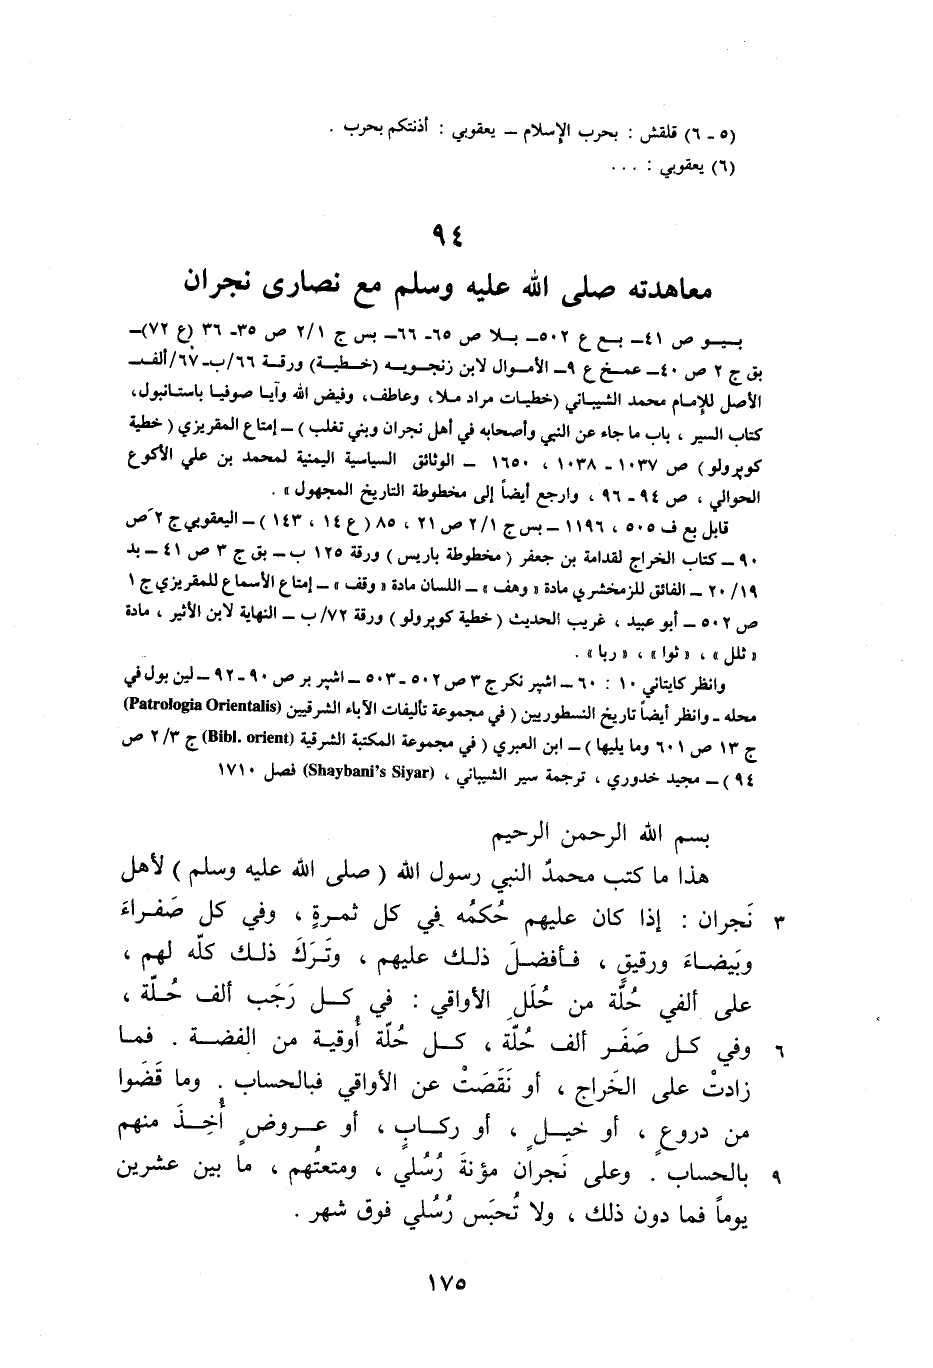 (٥ ـ ٦) قلقش : بحرب الإسلام – يعقوبي : أذنتكم بحرب .
(٦) يعقوبي : ...
٩٤
معاهدته صلى الله عليه وسلم مع نصارى نجران
بيو ص ٤١– بع ع ٥٠٢– بلا ص ٦٥– ٦٦– بس ج ٢/١ ص ٣٥– ٣٦ (ع ٧٢)–
بق ج ٢ ص ٤٠– عمخ ع ٩– الأموال لابن زنجويه (خطية) ورقة ٦٦/ب– ٦٧/ألف–
الأصل للإمام محمد الشيباني (خطيات مراد ملا، وعاطف، وفيض الله وآيا صوفيا باستانبول،
كتاب السير ، باب ما جاء عن النبي وأصحابه في أهل نجران وبني تغلب) – إمتاع المقريزي (خطية
كوپرولو) ص ١٠٣٧ – ١٠٣٨ ، ١٦٥٠ – الوثائق السياسية اليمنية لمحمد بن علي الأكوع
الحوالي ، ص ٩٤ – ٩٦ ، وارجع أيضاً إلى مخطوطة التاريخ المجهول» .
قابل بع ف ٥٠٥ ، ١١٩٦ – بس ج ٢/١ ص ٢١ ، ٨٥ (ع ١٤ ، ١٤٣) – اليعقوبي ج ٢ ص
٩٠ – كتاب الخراج لقدامة بن جعفر (مخطوطة باريس) ورقة ١٢٥ ب – بق ج ٣ ص ٤١ – بد
٢٠/١٩ – الفائق للزمخشري مادة « وهف » – اللسان مادة « وقف » – إمتاع الأسماع للمقريزي ج ١
ص ٥٠٢ – أبو عبيد ، غريب الحديث (خطية كوپرولو) ورقة ٧٢/ب – النهاية لابن الأثير ، مادة
« ثلل » ، « ثوا » ، « ربا » .
وانظر كايتاني ١٠ : ٦٠ – اشپر نكر ج ٣ ص ٥٠٢ – ٥٠٣ – اشپر بر ص ٩٠ – ٩٢ – لين بول في
محله – وانظر أيضاً تاريخ النسطوريين (في مجموعة تأليفات الآباء الشرقيين (Patrologia Orientalis)
ج ١٣ ص ٦٠١ وما يليها) – ابن العبري (في مجموعة المكتبة الشرقية (Bibl. orient) ج ٢/٣ ص
٩٤) – مجيد خدوري ، ترجمة سير الشيباني ، (Shaybani's Siyar) فصل ١٧١٠
بسم الله الرحمن الرحيم
هذا ما كتب محمدٌ النبي رسول الله (صلى الله عليه وسلم) لأهل
٣ نَجران : إذا كان عليهم حُكمُه في كل ثمرةٍ ، وفي كل صَفراءَ
وبَيضاءَ ورقيقٍ ، فأفضلَ ذلك عليهم ، وتَرَكَ ذلك كلّه لهم ،
على ألفي حُلّة من حُلَلِ الأواقي : في كل رَجَب ألف حُلّة ،
٦ وفي كل صَفَر ألف حُلّة ، كل حُلّة أُوقية من الفضة . فما
زادتْ على الخَراج ، أو نَقَصَتْ عن الأواقي فبالحساب . وما قَضَوا
من دروعٍ ، أو خيلٍ ، أو ركابٍ ، أو عروضٍ أُخِذَ منهم
٩ بالحساب . وعلى نَجران مؤنةَ رُسُلي ، ومتعتُهم ، ما بين عشرين
يوماً فما دون ذلك ، ولا تُحبَس رُسُلي فوق شهر .
١٧٥